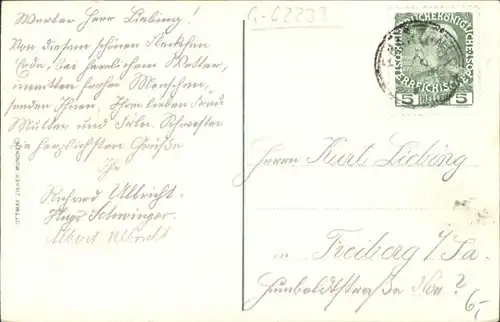 G-62233
Werter Herr Liebing!
Von diesem schönen Fleckchen
Erde, bei herrlichem Wetter,
inmitten froher Menschen,
senden Ihnen, Ihrer lieben Frau
Mutter und Frln. Schwester
die herzlichsten Grüße
Ihr
Richard Ulbricht.
Hugo Schwinger.
Albert Ulbricht
OTTMAR ZIEHER, MÜNCHEN
KAISERLICHE KÖNIGLICHE
ÖSTERREICHISCHE POST
5 HELLER 5
Herrn Kurt Liebing
in Freiberg i/Sa.
Humboldtstraße Nro. ?
6,-